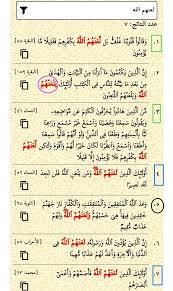 لعنهم الله
عدد النتائج: ٧
١. وَقَالُوا قُلُوبُنَا غُلْفٌ بَل لَّعَنَهُمُ اللَّهُ بِكُفْرِهِمْ فَقَلِيلًا مَّا
يُؤْمِنُونَ
[البقرة ٨٨]
٢. إِنَّ الَّذِينَ يَكْتُمُونَ مَا أَنزَلْنَا مِنَ الْبَيِّنَاتِ وَالْهُدَىٰ
مِن بَعْدِ مَا بَيَّنَّاهُ لِلنَّاسِ فِي الْكِتَابِ أُولَٰئِكَ يَلْعَنُهُمُ
اللَّهُ وَيَلْعَنُهُمُ اللَّاعِنُونَ
[البقرة ١٥٩]
٣. مِّنَ الَّذِينَ هَادُوا يُحَرِّفُونَ الْكَلِمَ عَن مَّوَاضِعِهِ
وَيَقُولُونَ سَمِعْنَا وَعَصَيْنَا وَاسْمَعْ غَيْرَ مُسْمَعٍ وَرَاعِنَا
٤. أُولَٰئِكَ الَّذِينَ لَعَنَهُمُ اللَّهُ وَمَن يَلْعَنِ اللَّهُ فَلَن تَجِدَ
لَهُ نَصِيرًا
٥. وَعَدَ اللَّهُ الْمُنَافِقِينَ وَالْمُنَافِقَاتِ وَالْكُفَّارَ نَارَ جَهَنَّمَ
خَالِدِينَ فِيهَا هِيَ حَسْبُهُمْ وَلَعَنَهُمُ اللَّهُ وَلَهُمْ
عَذَابٌ مُّقِيمٌ
[التوبة ٦٨]
٦. إِنَّ الَّذِينَ يُؤْذُونَ اللَّهَ وَرَسُولَهُ لَعَنَهُمُ اللَّهُ فِي
[الأحزاب ٥٧]
٧. أُولَٰئِكَ الَّذِينَ لَعَنَهُمُ اللَّهُ فَأَصَمَّهُمْ
[محمد ٢٣]